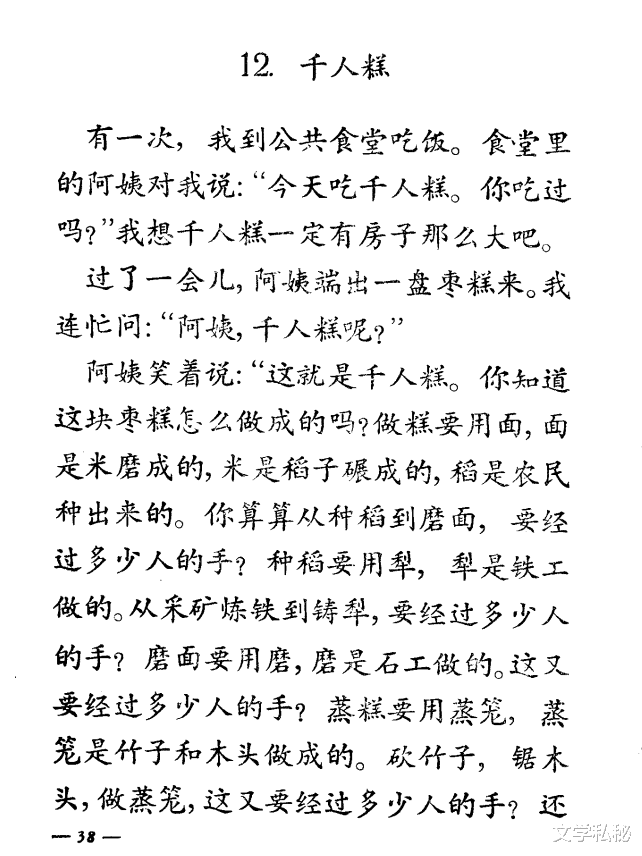 12. 千人糕
有一次，我到公共食堂吃饭。食堂里
的阿姨对我说:“今天吃千人糕。你吃过
吗?”我想千人糕一定有房子那么大吧。
过了一会儿,阿姨端出一盘枣糕来。我
连忙问:“阿姨,千人糕呢?”
阿姨笑着说:“这就是千人糕。你知道
这块枣糕怎么做成的吗?做糕要用面,面
是米磨成的,米是稻子碾成的,稻是农民
种出来的。你算算从种稻到磨面，要经
过多少人的手？种稻要用犁，犁是铁工
做的。从采矿炼铁到铸犁,要经过多少人
的手？磨面要用磨,磨是石工做的。这又
要经过多少人的手？蒸糕要用蒸笼，蒸
笼是竹子和木头做成的。砍竹子，锯木
头,做蒸笼,这又要经过多少人的手？还
— 38 —
文学私秘